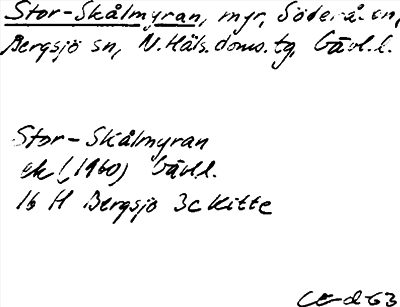 Stor-Skålmyran, myr, Söderå. en,
Bergsjö sn, N. Häls. doms. tg, Gävl. l.
Stor-Skålmyran
ek (1960) Gävl. l.
16 H Bergsjö 3c Kitte